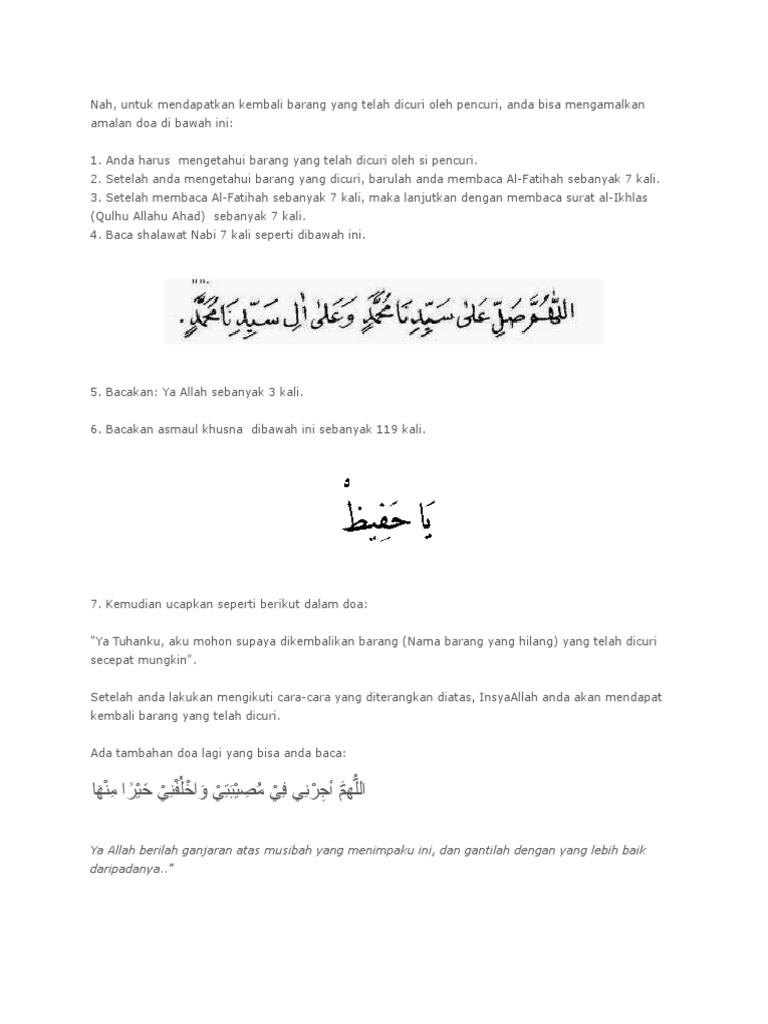 Nah, untuk mendapatkan kembali barang yang telah dicuri oleh pencuri, anda bisa mengamalkan
amalan doa di bawah ini:
1. Anda harus  mengetahui barang yang telah dicuri oleh si pencuri.
2. Setelah anda mengetahui barang yang dicuri, barulah anda membaca Al-Fatihah sebanyak 7 kali.
3. Setelah membaca Al-Fatihah sebanyak 7 kali, maka lanjutkan dengan membaca surat al-Ikhlas
(Qulhu Allahu Ahad)  sebanyak 7 kali.
4. Baca shalawat Nabi 7 kali seperti dibawah ini.
اَللّٰهُمَّ صَلِّ عَلىٰ سَيِّدِنَا مُحَمَّدٍ وَعَلىٰ اٰلِ سَيِّدِنَا مُحَمَّدٍ.
5. Bacakan: Ya Allah sebanyak 3 kali.
6. Bacakan asmaul khusna  dibawah ini sebanyak 119 kali.
يَا حَفِيظُ
7. Kemudian ucapkan seperti berikut dalam doa:
"Ya Tuhanku, aku mohon supaya dikembalikan barang (Nama barang yang hilang) yang telah dicuri
secepat mungkin".
Setelah anda lakukan mengikuti cara-cara yang diterangkan diatas, InsyaAllah anda akan mendapat
kembali barang yang telah dicuri.
Ada tambahan doa lagi yang bisa anda baca:
اللَّهُمَّ أَجِرْنِي فِيْ مُصِيْبَتِيْ وَاخْلُفْنِيْ خَيْرًا مِنْهَا
Ya Allah berilah ganjaran atas musibah yang menimpaku ini, dan gantilah dengan yang lebih baik
daripadanya.."